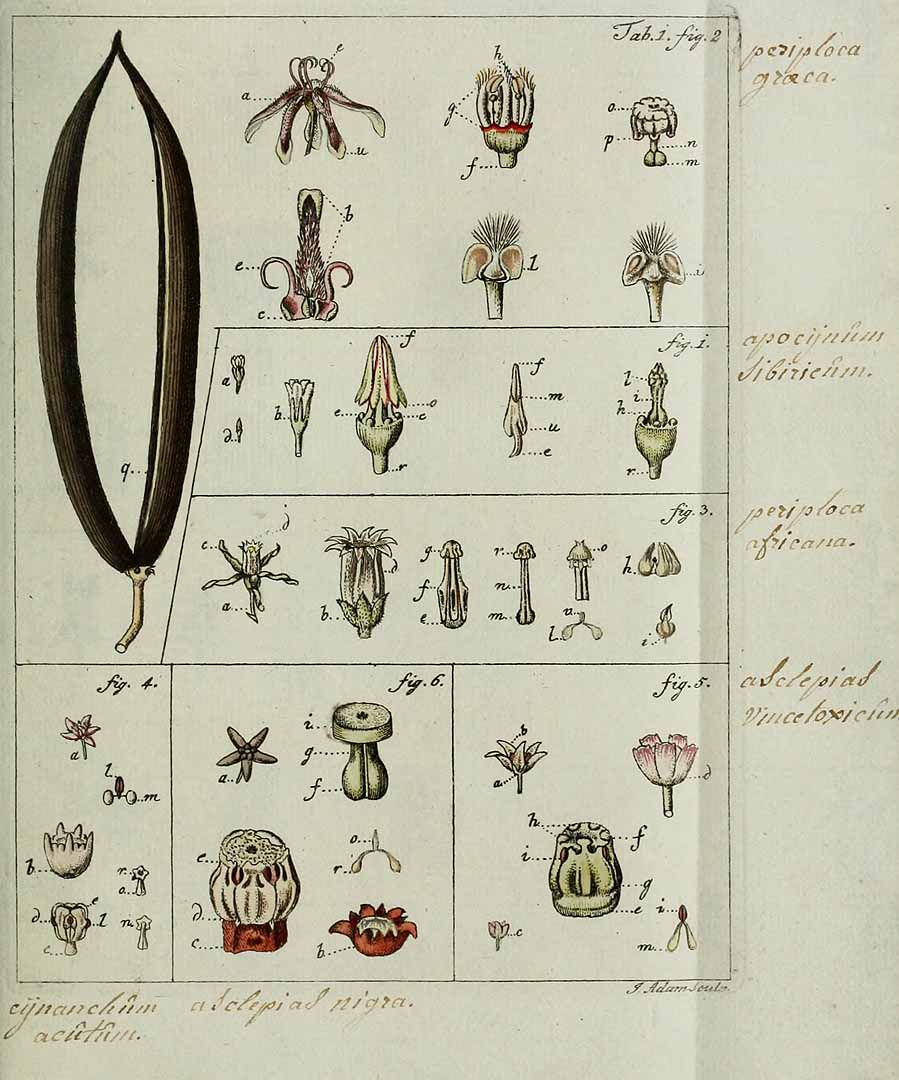 Tab.1. fig.2
periploca
græca.
e
a
u
h
g
f
o
p
n
m
b
e
c
l
i
fig.1.
apocijnum
sibiricum.
a
d
b
f
e
o
c
r
f
m
u
e
l
i
h
r
q
fig.3.
periploca
africana.
c
d
a
d
b
g
f
e
r
n
m
o
u
l
h
i
fig. 4.
fig.6.
fig.5.
asclepias
vincetoxicum
a
l
m
b
r
o
d
e
l
c
n
a
i
g
f
e
d
c
o
r
b
b
a
d
h
f
i
g
e
c
i
m
J. Adam sculp.
cijnanchum
acutum.
asclepias nigra.